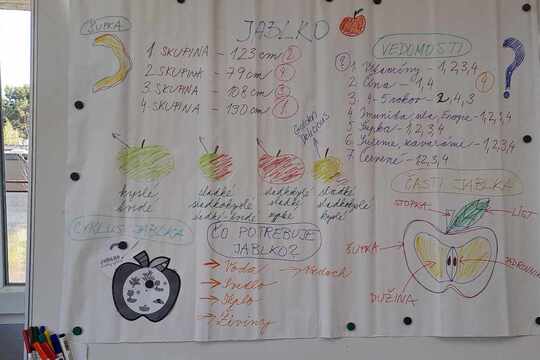 JABLKO
ŠUPKA
1 SKUPINA - 123 cm 2
2 SKUPINA - 79 cm 4
3 SKUPINA - 108 cm 3
4 SKUPINA - 130 cm 1
VEDOMOSTI
1 Vitamíny - 1,2,3,4
2 Čína - 1,4
3 4-5 rokov - 2,4,3
4 Imunita - 1,2,3,4
5 Šupka - 1,2,3,4
6 Sušeme, zavárame - 1,2,3,4
7 Červené - 1,2,3,4
4
Golden
Delicious
kyslé
tvrdé
sladké
sladkokyslé
sladkokyslé
sladké
sladké
sladkokyslé
kyslé
CYKLUS JABLKA
ČO POTREBUJE
JABLKO?
→ Voda → Vzduch
→ Svetlo
→ Teplo
→ Živiny
ČASTI JABLKA
STOPKA
LIST
ŠUPKA
JADROVNÍK
DUŽINA